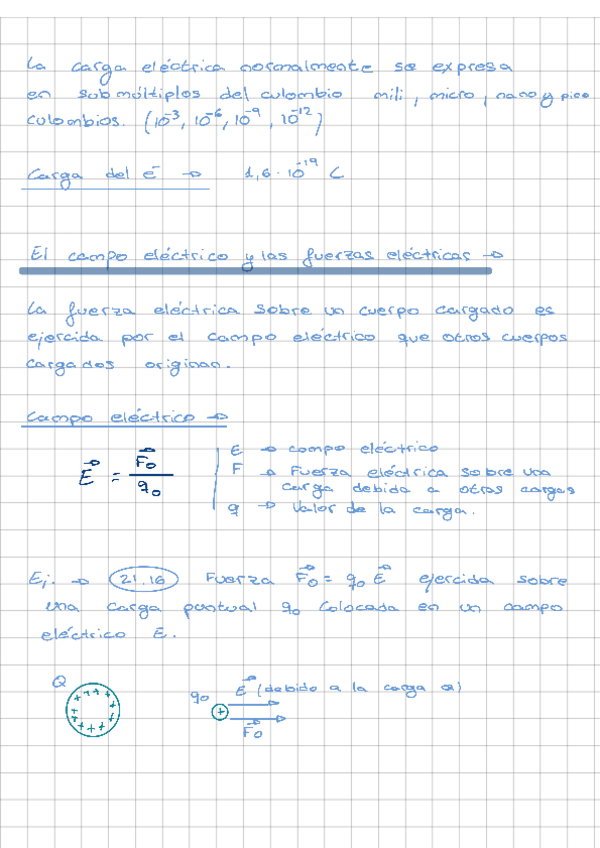 La carga eléctrica normalmente se expresa
en submúltiplos del culombio mili, micro, nano y pico
culombios. (10⁻³, 10⁻⁶, 10⁻⁹, 10⁻¹²)
Carga del e⁻ → 1,6 · 10⁻¹⁹ C
El campo eléctrico y las fuerzas eléctricas →
La fuerza eléctrica sobre un cuerpo cargado es
ejercida por el campo eléctrico que otros cuerpos
cargados originan.
Campo eléctrico →
E⃗ = F⃗₀ / q₀
E → campo eléctrico
F → Fuerza eléctrica sobre una
carga debida a otras cargas
q → Valor de la carga.
Ej. → 21.16 Fuerza F⃗₀ = q₀ E⃗ ejercida sobre
una carga puntual q₀ colocada en un campo
eléctrico E.
Q + + + + + + + + + + + +
q₀ + E⃗ (debido a la carga Q)
F⃗₀